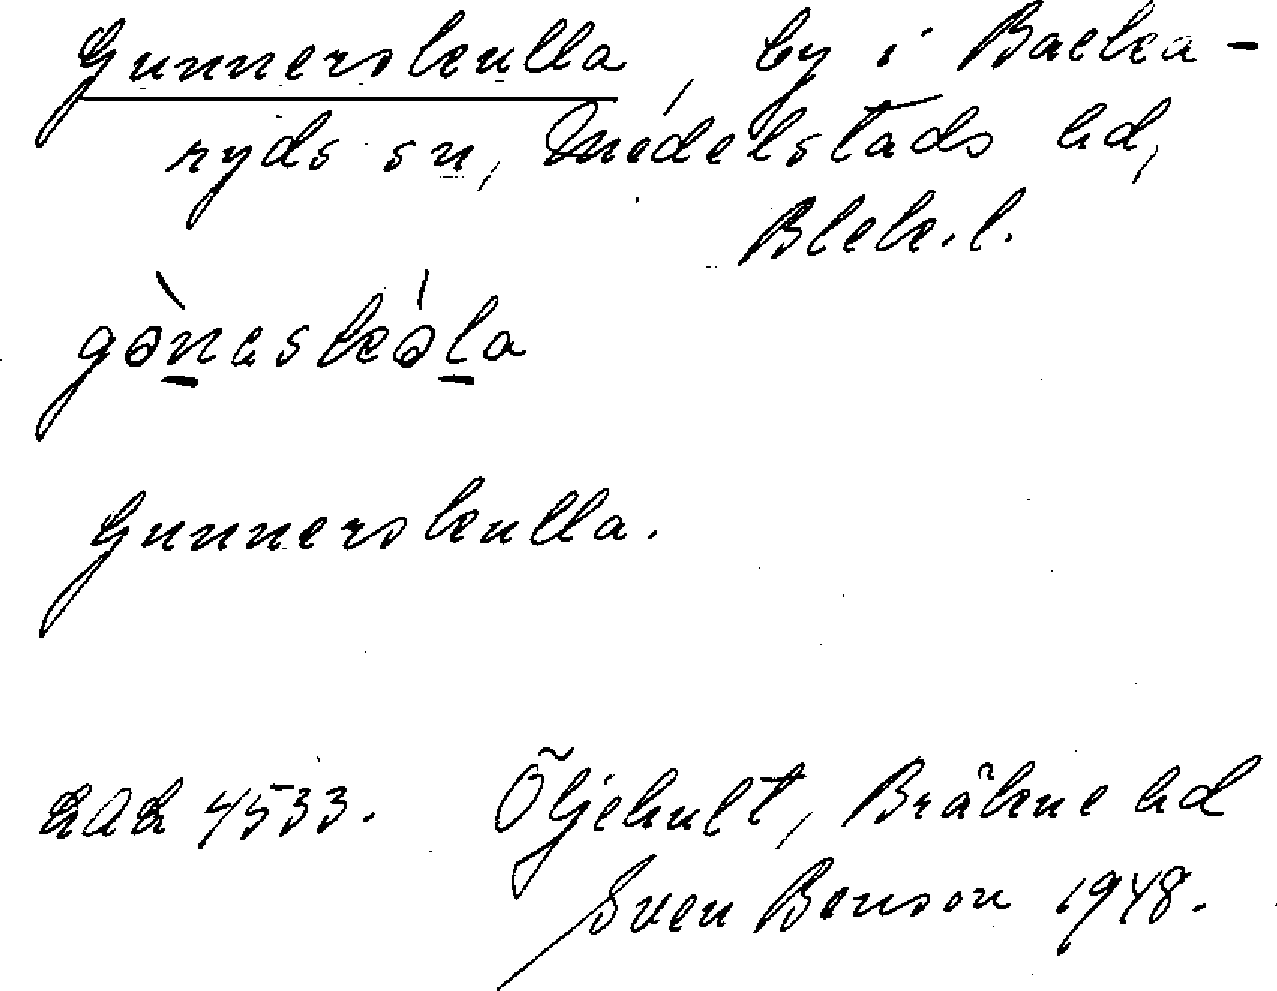 Gunnerskulla, by i Backa-
ryds sn, Medelstads hd,
Blek.l.
gə̀naskə́la
Gunnerskulla.
LAL 4533. Öljehult, Bräkne hd
Sven Benson 1948.